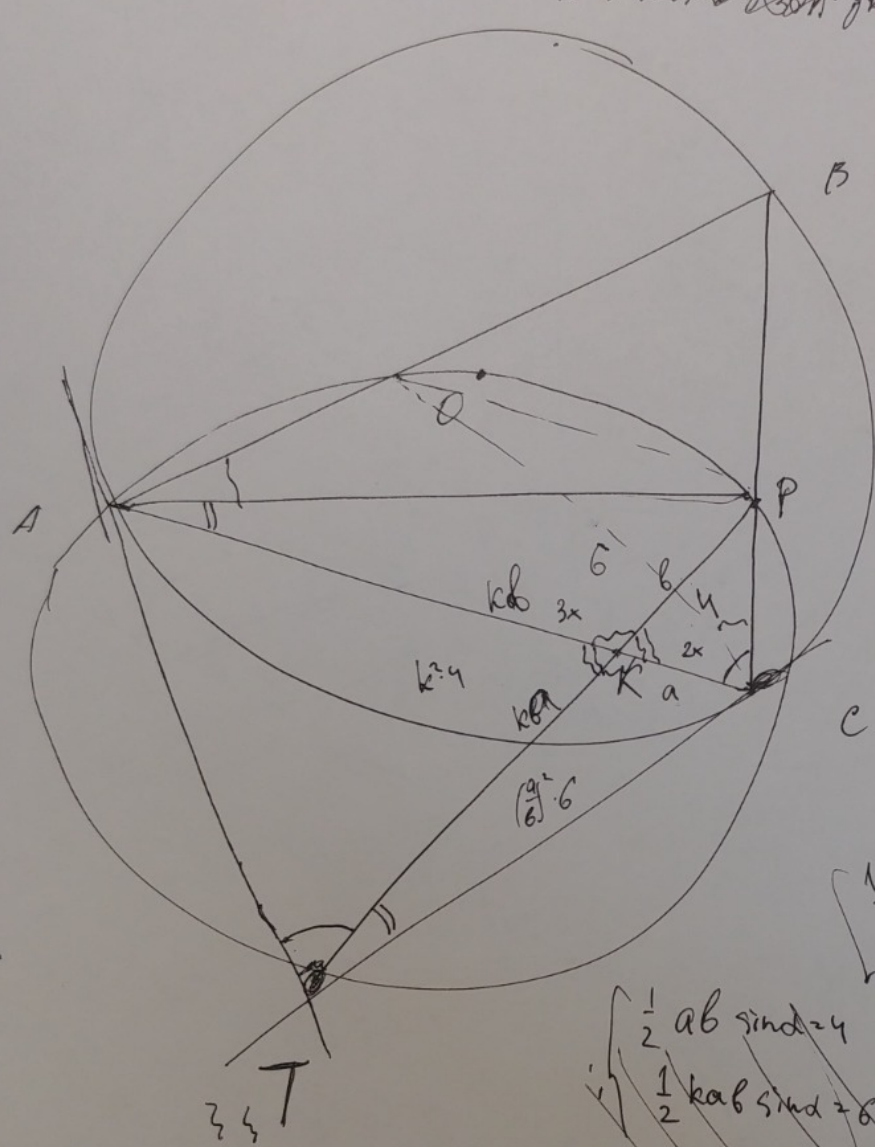 B
O
A
P
6
в
4
kв
3x
2x
k²·4
K
a
kа
C
(a/в)²·6
T
½ aв sinα = 4
½ kaв sinα = 6